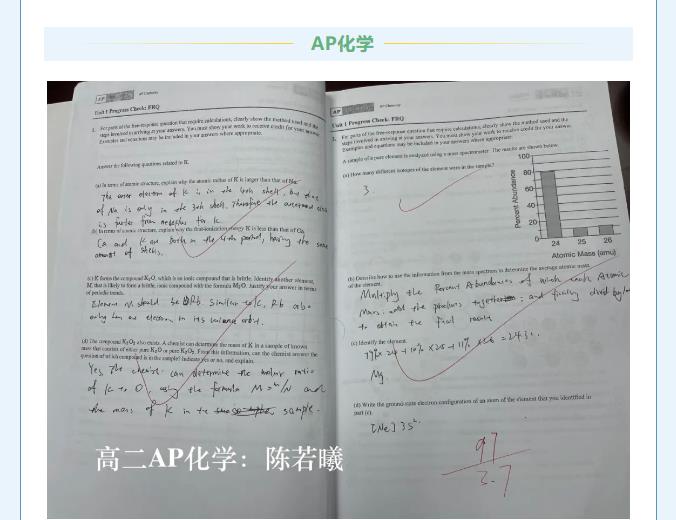 AP化学
AP
AP Chemistry
Unit 1 Progress Check: FRQ
1. For parts of the free-response question that require calculations, clearly show the method used and the
steps involved in arriving at your answers. You must show your work to receive credit for your answer.
Examples and equations may be included in your answers where appropriate.
Answer the following questions related to K.
(a) In terms of atomic structure, explain why the atomic radius of K is larger than that of Na.
The outer electron of K is in the 4th shell, but that
of Na is only in the 3th shell. Therefore the
is farther from nucleus for K.
(b) In terms of atomic structure, explain why the first-ionization energy K is less than that of Ca.
Ca and K are both in the 4th period, having the same
amount of shells.
(c) K forms the compound K₂O, which is an ionic compound that is brittle. Identify another element,
M, that is likely to form a brittle, ionic compound with the formula M₂O. Justify your answer in terms
of periodic trends.
Element M should be Rb. Similar to K, Rb also
only has one electron in its orbit.
(d) The compound K₂O₂ also exists. A chemist can determine the mass of K in a sample of known
mass that consists of either pure K₂O or pure K₂O₂. From this information, can the chemist answer the
question of which compound is in the sample? Indicate yes or no, and explain.
Yes. The chemist can determine the molar ratio
of K to O, using the formula M = m/N and
the mass of K in the sample.
高二AP化学：陈若曦
AP
AP Chemistry
Unit 1 Progress Check: FRQ
2. For parts of the free-response question that require calculations, clearly show the method used and the
steps involved in arriving at your answers. You must show your work to receive credit for your answer.
Examples and equations may be included in your answers where appropriate.
A sample of a pure element is analyzed using a mass spectrometer. The results are shown below.
(a) How many different isotopes of the element were in the sample?
3
Percent Abundance
100
80
60
40
20
0
24 25 26
Atomic Mass (amu)
(b) Describe how to use the information from the mass spectrum to determine the average atomic mass
of the element.
Multiply the Percent Abundances of which each Atomic
Mass, add the products together; and finally divid by
to obtain the final results
(c) Identify the element.
79% × 24 + 10% × 25 + 11% × 26 = 24.3
Mg.
(d) Write the ground-state electron configuration of an atom of the element that you identified in
part (c).
[Ne] 3s².
97
2.7